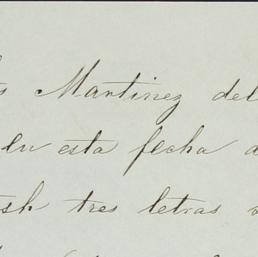 s Martinez del
en esta fecha a
sh tres letras